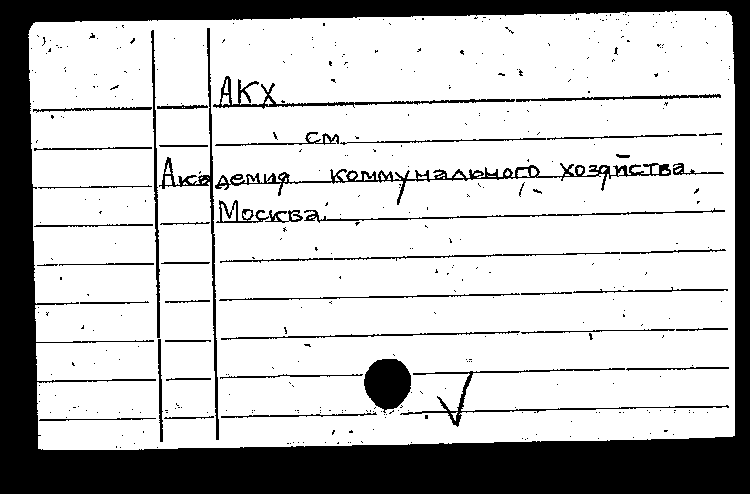 АКХ.
см.
Академия коммунального хозяйства.
Москва.